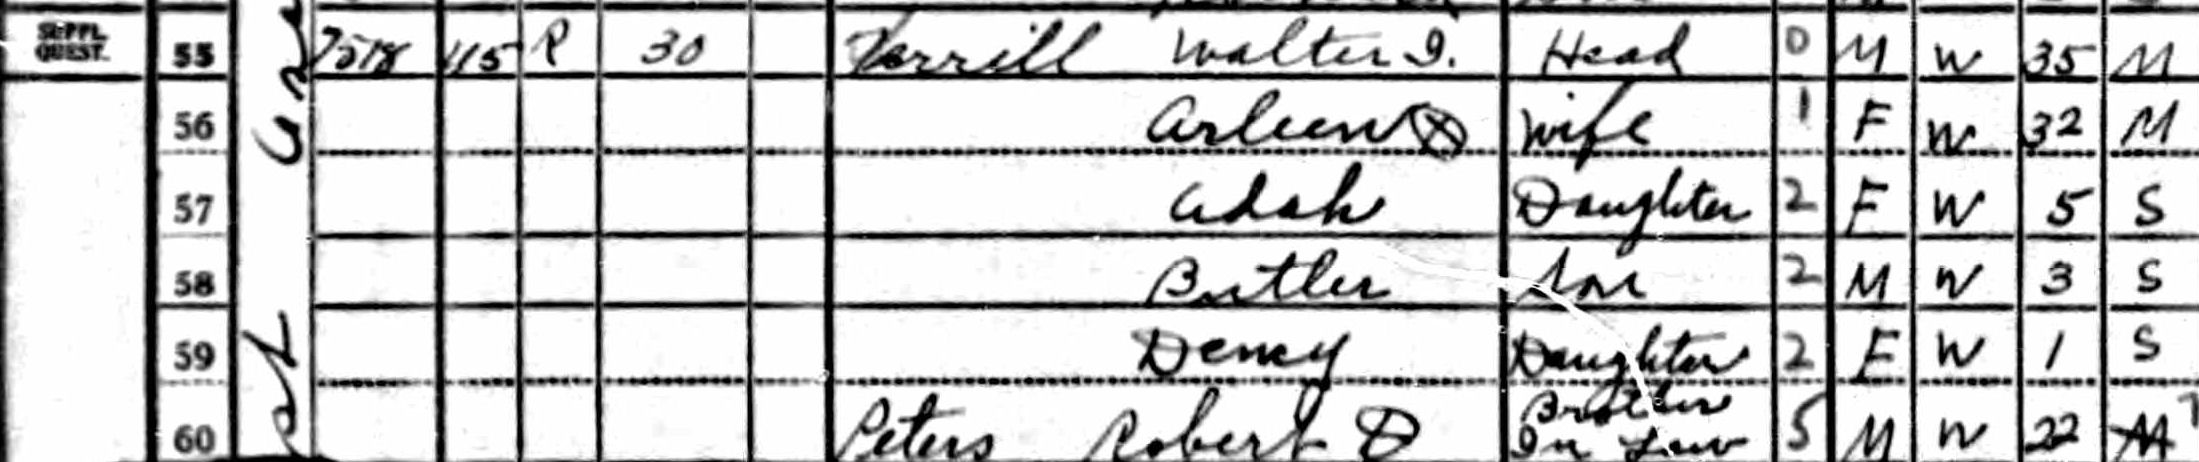 SUPPL. QUEST. 55 7518 115 R 30 Terrill Walter I. Head 0 M W 35 M
56 Arleen Ⓧ Wife 1 F W 32 M
57 Adah Daughter 2 F W 5 S
58 Butler Son 2 M W 3 S
59 Dency Daughter 2 F W 1 S
60 Peters Robert D Brother In Law 5 M W 22 M 7